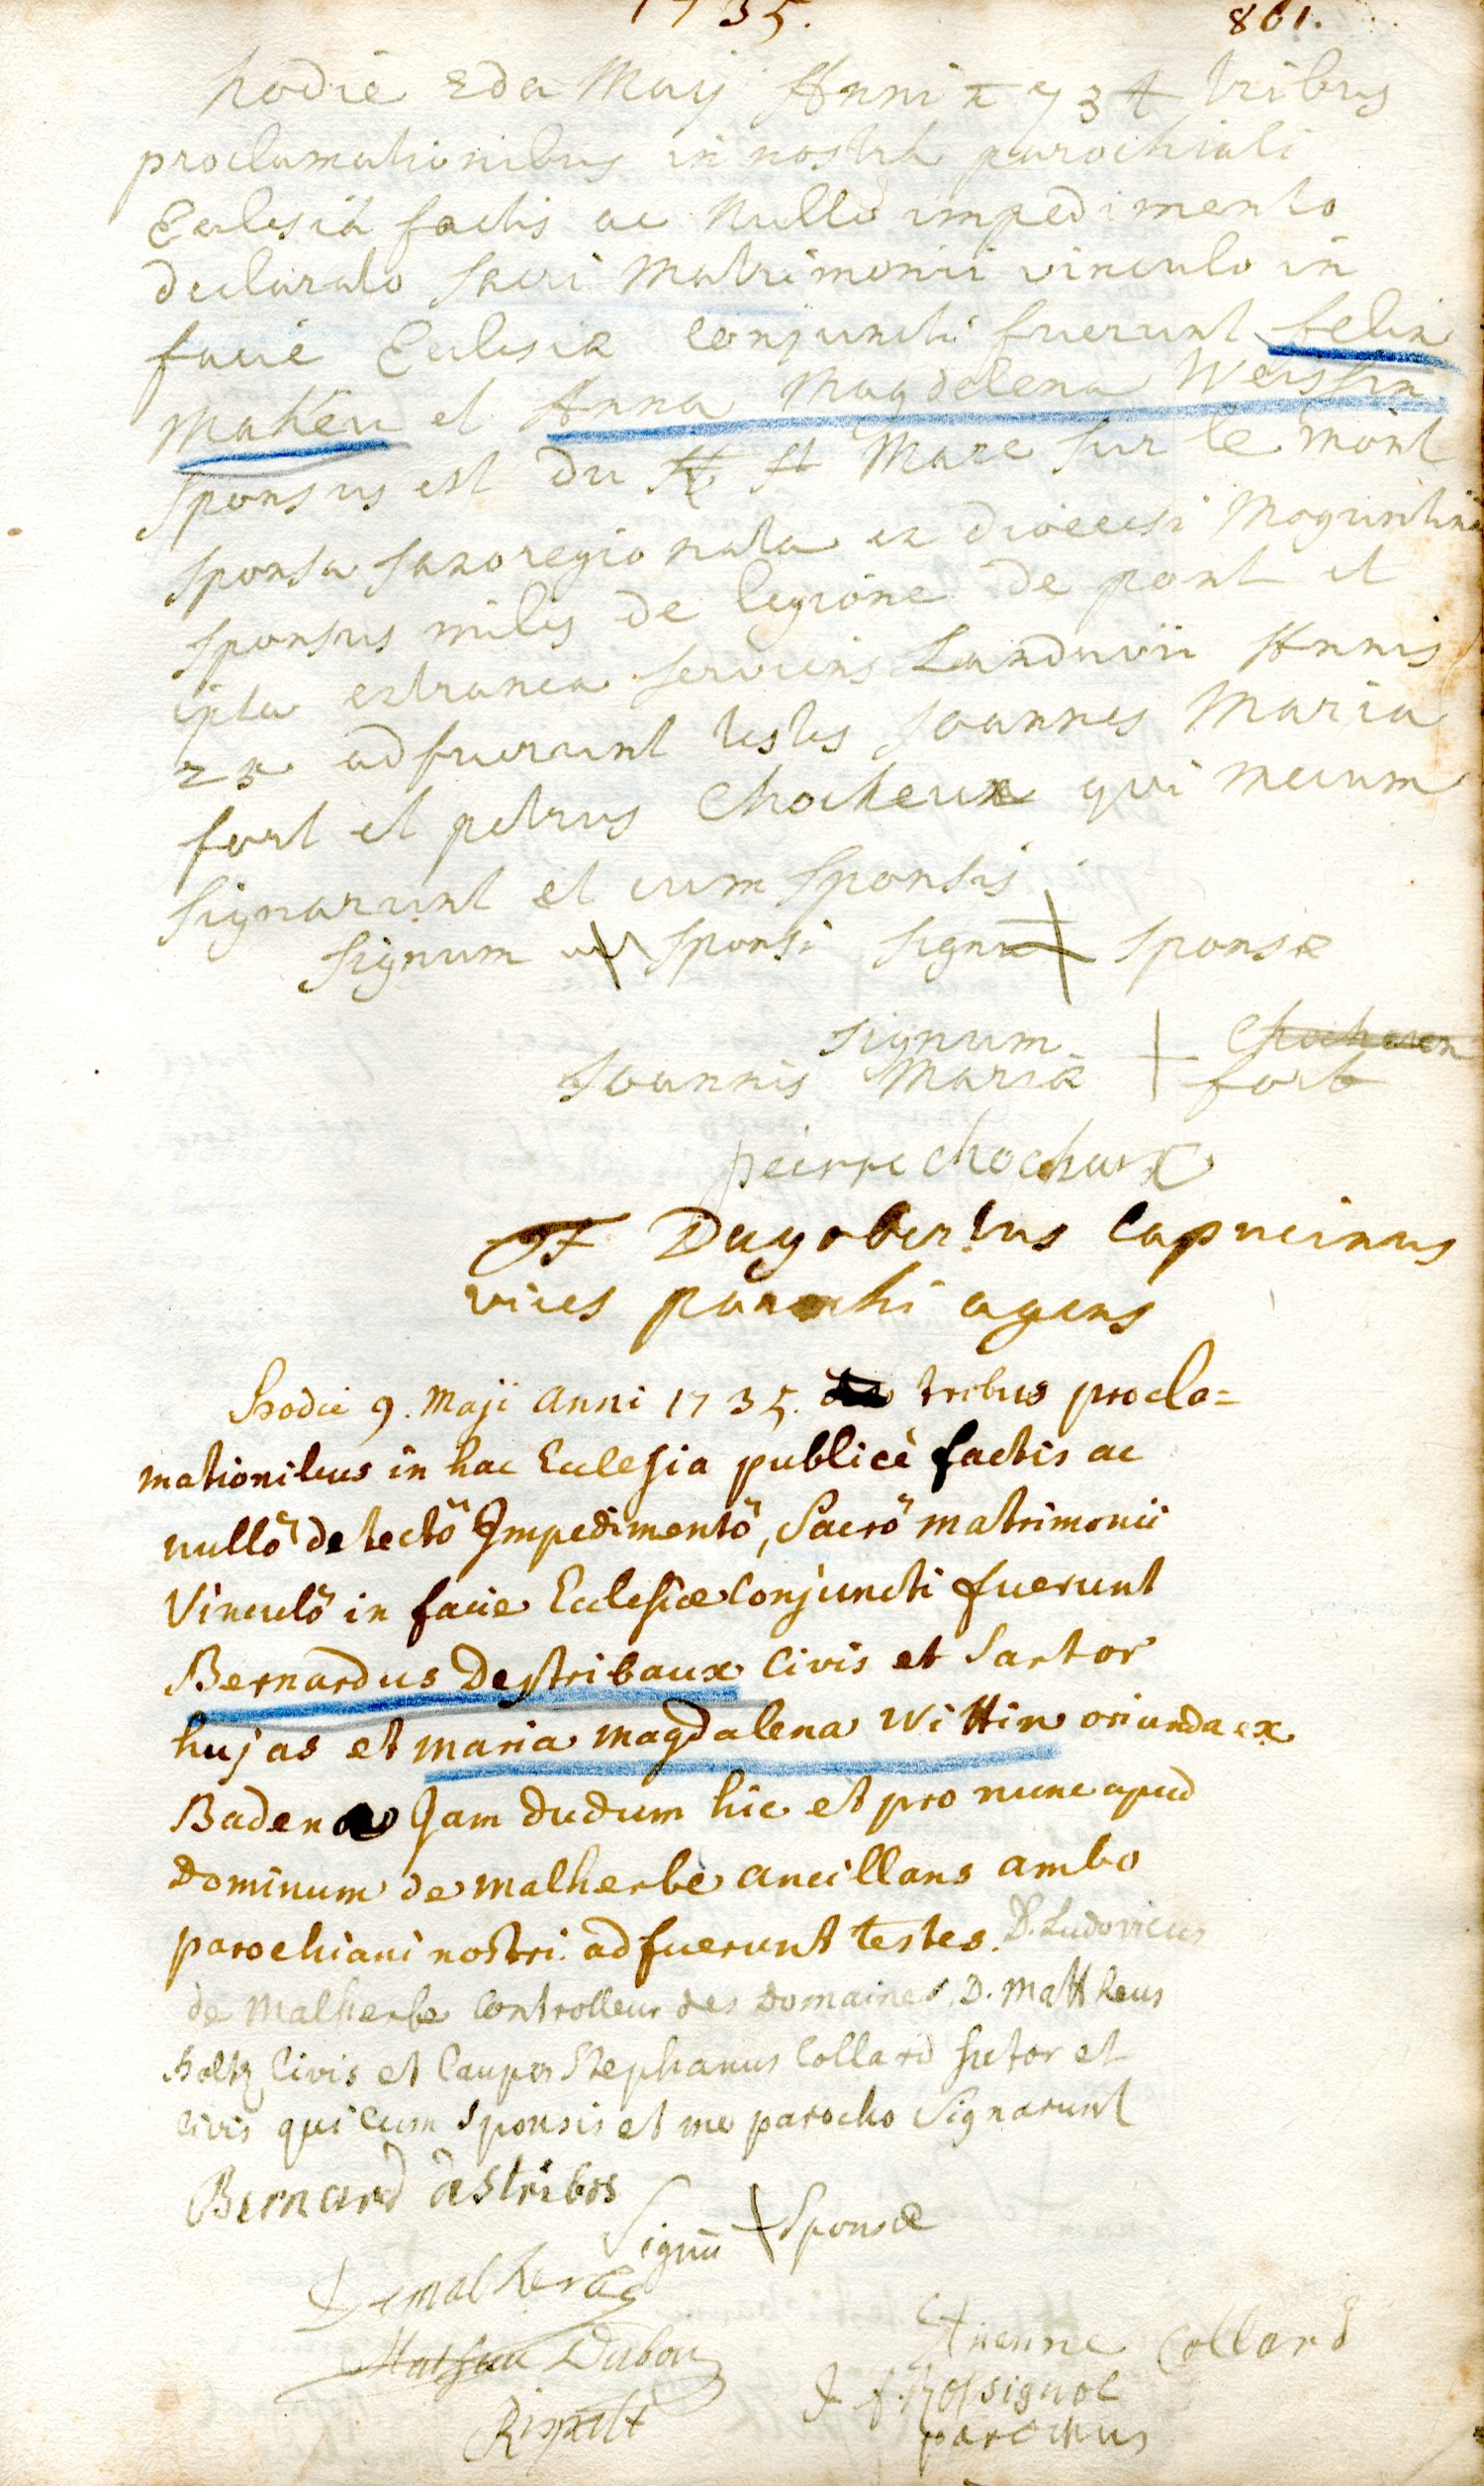 1735. 861.
hodie 2da Maij Anni 1734 tribus
proclamationibus in nostra parochiali
Eclesia factis ac nullo impedimento
declarato sacri Matrimonii vinculo in
facie Eclesiæ conjuncti fuerunt felix
Maheu et Anna Magdelena Weissin
sponsus est du st Marc sur le mont
sponsa saxoregio nata ex dioecesi Moguntina
sponsus miles de legione de pont et
ipsa extranea serviens Landavii Annis
25 adfuerunt testes Joannes Maria
fort et petrus Chocheux qui mecum
signarunt et cum sponsis
signum sponsi signum sponsæ
signum Chocheux
Joannis Mariæ fort
peirre chocheux
F Dagobertus Capucinus
vices parochi agens
Hodie 9. Maji anni 1735. tribus procla=
mationibus in hac Ecclesia publicè factis ac
nullo detecto Impedimento, Sacro matrimonii
Vinculo in facie Ecclesiæ Conjuncti fuerunt
Bernardus Destribaux Civis et Sartor
hujas et maria magdalena Wittin oriunda ex
Baden Jam dudum hic et pro nunc apud
Dominum de malherbe ancillans ambo
parochiani nostri. adfuerunt testes. D. Ludovicus
de Malherbe Controlleur des Domaines, D. Mattheus
holtz Civis et Caupo Stephanus Collard sutor et
civis qui cum sponsis et me parocho Signarunt
Bernard destribos
Signū Sponsæ
Demalherbe
Etienne Collard
Dubou
J. f. Rossignol
parochus